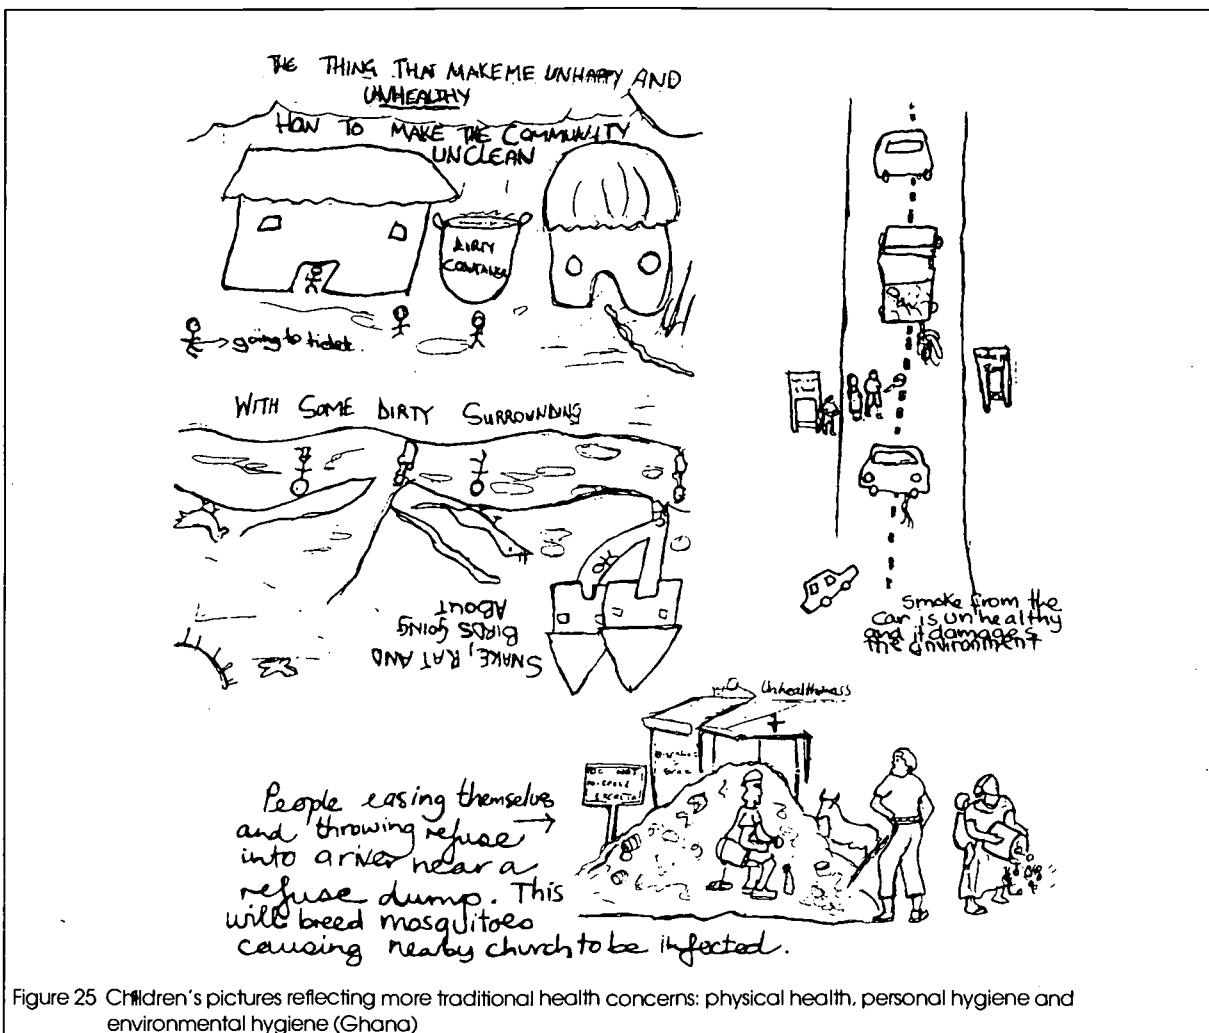 THE THING THAT MAKE ME UNHAPPY AND
UNHEALTHY
HOW TO MAKE THE COMMUNITY
UNCLEAN
DIRTY
CONTAINER
→ going to ticket.
WITH SOME DIRTY SURROUNDING
SNAKE, RAT AND
BIRDS GOING
ABOUT
smoke from the
car is unhealthy
and it damages
the environment
unhealthiness
DO NOT
People easing themselves
and throwing refuse →
into a river near a
refuse dump. This
will breed mosquitoes
causing nearby church to be infected.
Figure 25 Children's pictures reflecting more traditional health concerns: physical health, personal hygiene and
environmental hygiene (Ghana)